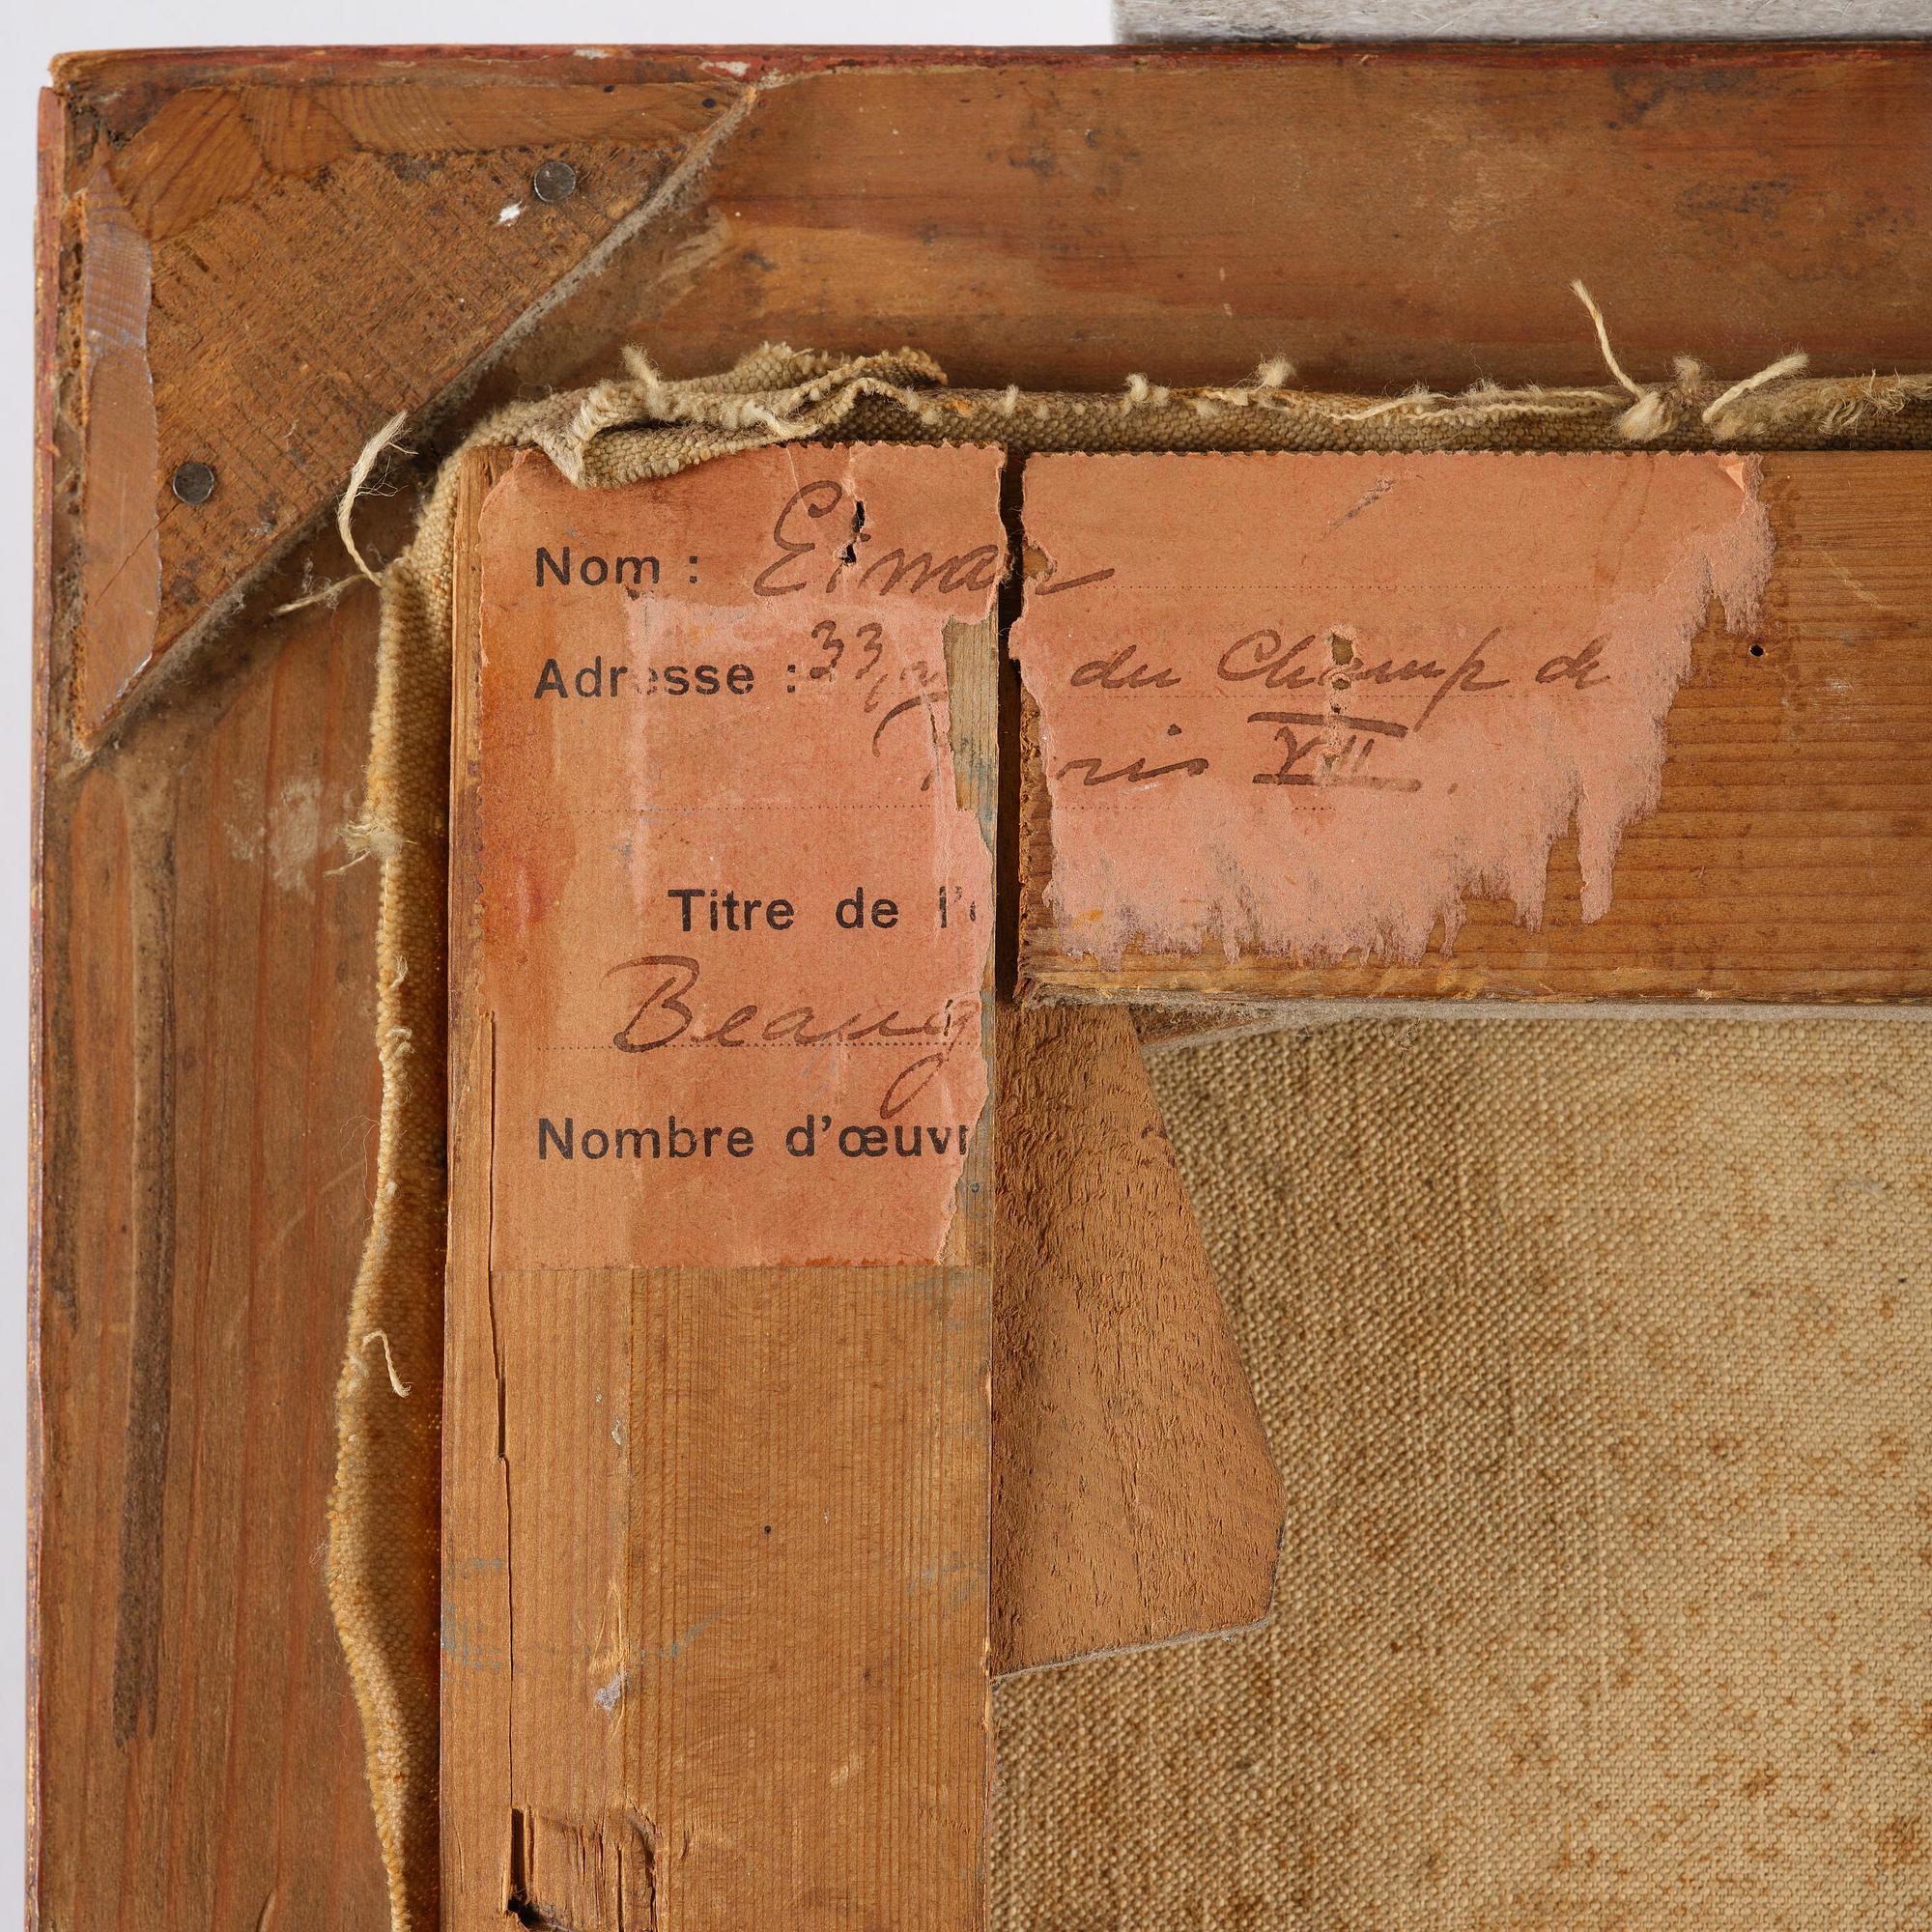 Nom : Eiman
Adresse : 33, du Champ de
Paris VII.
Titre de l'
Beaug
Nombre d'œuvr